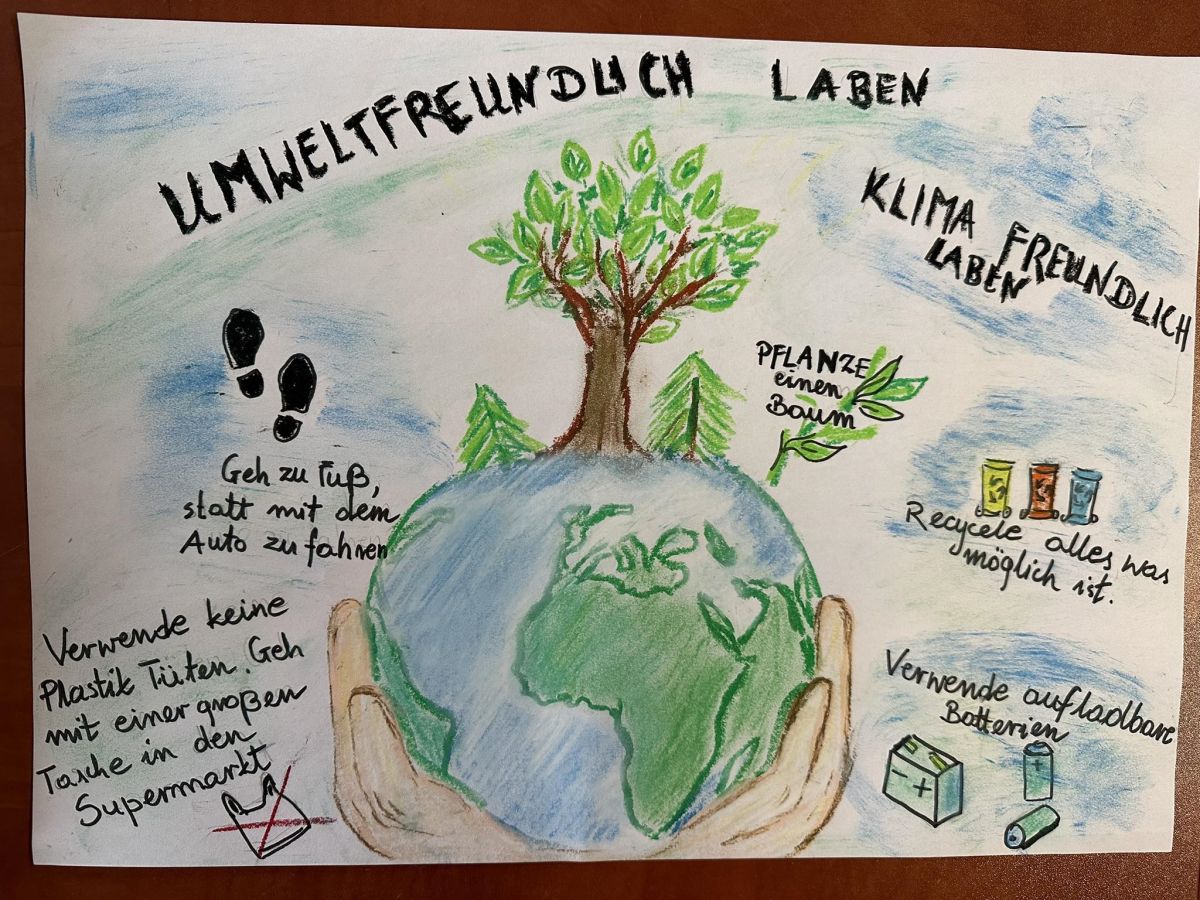 UMWELTFREUNDLICH LABEN
KLIMA FREUNDLICH
LABEN
PFLANZE
einen
Baum
Geh zu Fuß,
statt mit dem
Auto zu fahren
Recycele alles was
möglich ist.
Verwende keine
Plastik Tüten. Geh
mit einer großen
Tasche in den
Supermarkt
Verwende aufladbare
Batterien